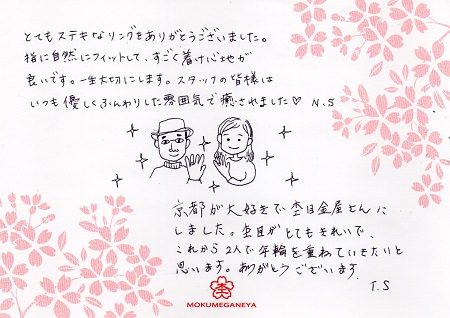 とてもステキなリングをありがとうございました。
指に自然にフィットして、すごく着け心地が
良いです。一生大切にします。スタッフの皆様は
いつも優しくふんわりした雰囲気で癒されました♡ N.S
京都が大好きで杢目金屋さんに
しました。杢目がとてもきれいで、
これから2人で年輪を重ねていきたいと
思います。ありがとうございます。
T.S
MOKUMEGANEYA